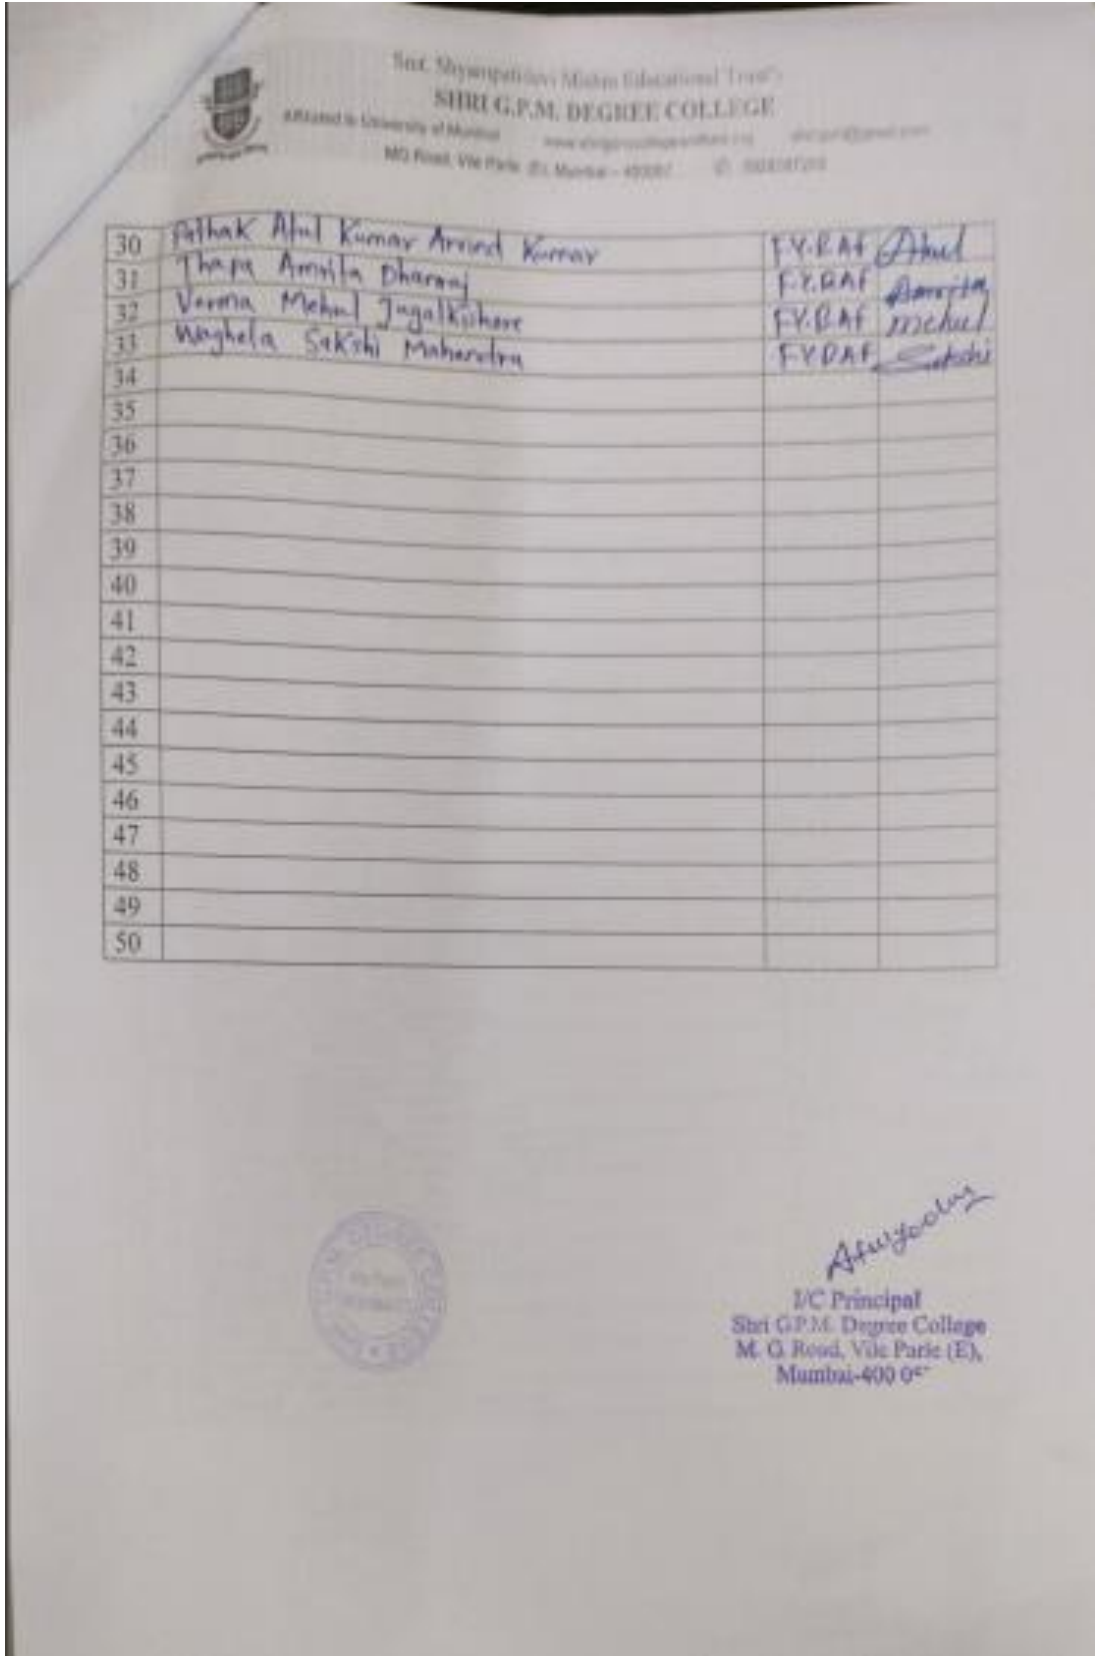 Smt. Shyampatidevi Mishra Educational Trust's
SHRI G.P.M. DEGREE COLLEGE
Affiliated to University of Mumbai
MG Road, Vile Parle (E), Mumbai - 400057
30 Pathak Atul Kumar Arvind Kumar F.Y.BAF Atul
31 Thapa Amrita Dharaj F.Y.BAF Amrita
32 Verma Mehul Jugalkishore F.Y.BAF Mehul
33 Waghela Sakshi Mahendra F.Y.BAF Sakshi
34
35
36
37
38
39
40
41
42
43
44
45
46
47
48
49
50
I/C Principal
Shri G.P.M. Degree College
M. G. Road, Vile Parle (E),
Mumbai-400 0